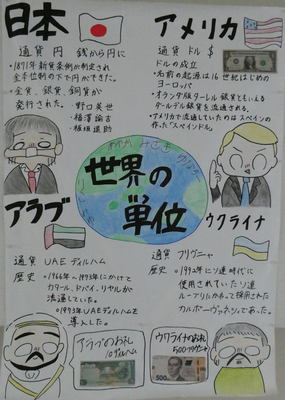 日本
通貨 円 銭から円に
・1871年新貨条例が制定され
金本位制の下で円ができた。
・金貨、銀貨、銅貨が
発行された。
・野口英世
・福澤諭吉
・板垣退助
アメリカ
通貨 ドル $
ドルの成立
・名前の起源は16世紀はじめの
ヨーロッパ
・オランダ版ターレル銀貨ともいえる
ダールデル銀貨を流通される。
・アメリカで流通していたのはスペインの
作った「スペインドル」
世界の
単位
アラブ
通貨 UAEディルハム
歴史
・1966年〜1973年にかけて
カタール、ドバイ、リヤルが
流通していた。
・1973年UAEディルハムを
導入した。
ウクライナ
通貨 フリヴニャ
歴史
・1992年にソ連時代に
使用されていたソ連
ルーブリにかわって採用された
カルボーヴァネツィであった。
アラブのお札
10ディルハム
ウクライナのお札
500フリヴニャ
500